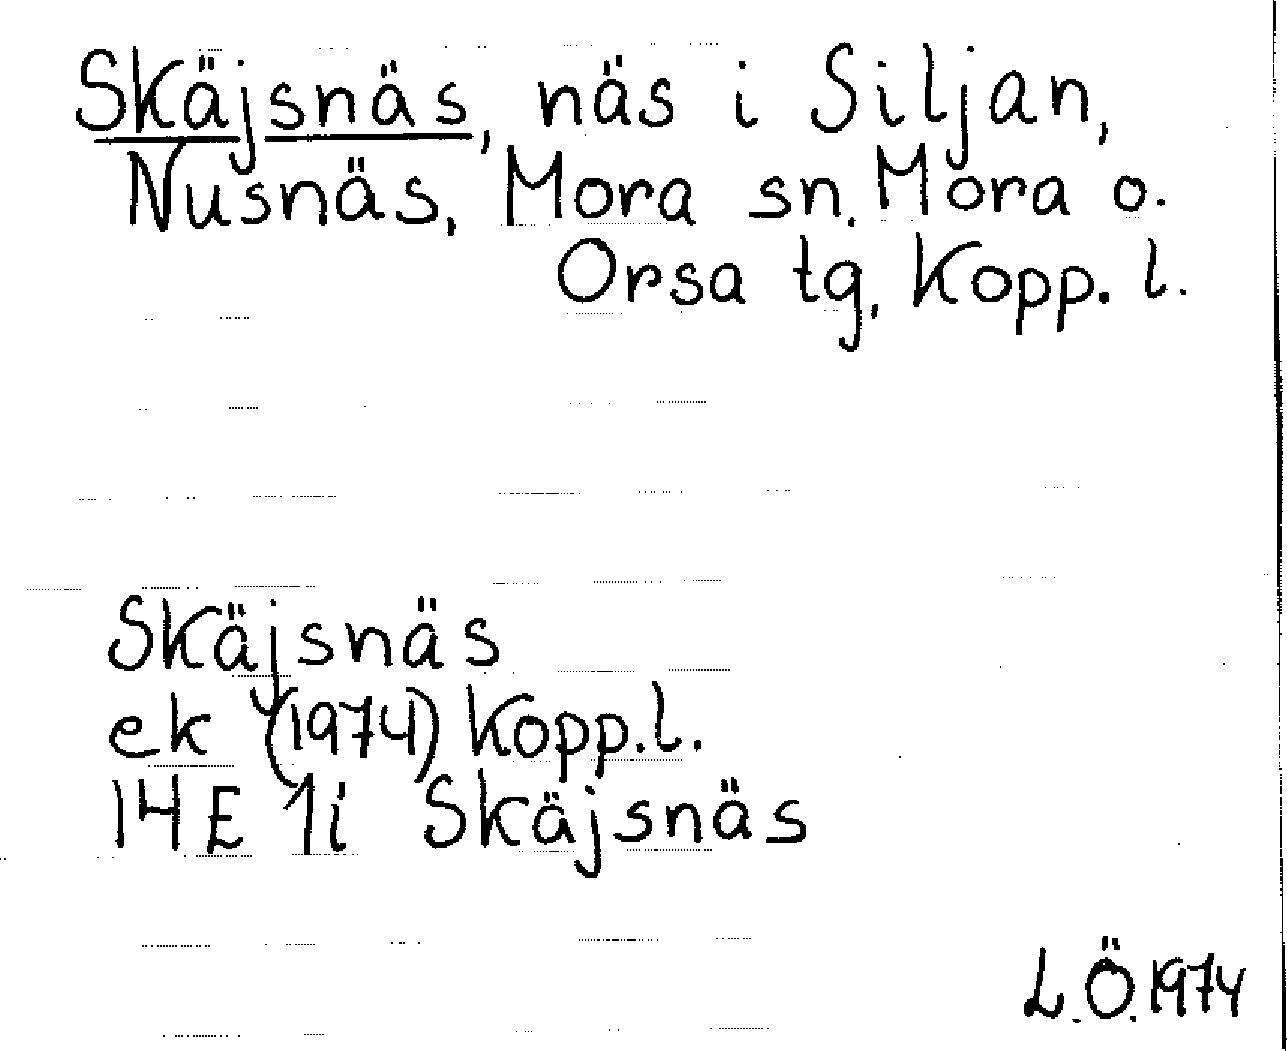 Skäjsnäs, näs i Siljan,
Nusnäs, Mora sn. Mora o.
Orsa tg, Kopp. l.
Skäjsnäs
ek (1974) Kopp.l.
14E 1i Skäjsnäs
L.Ö.1974